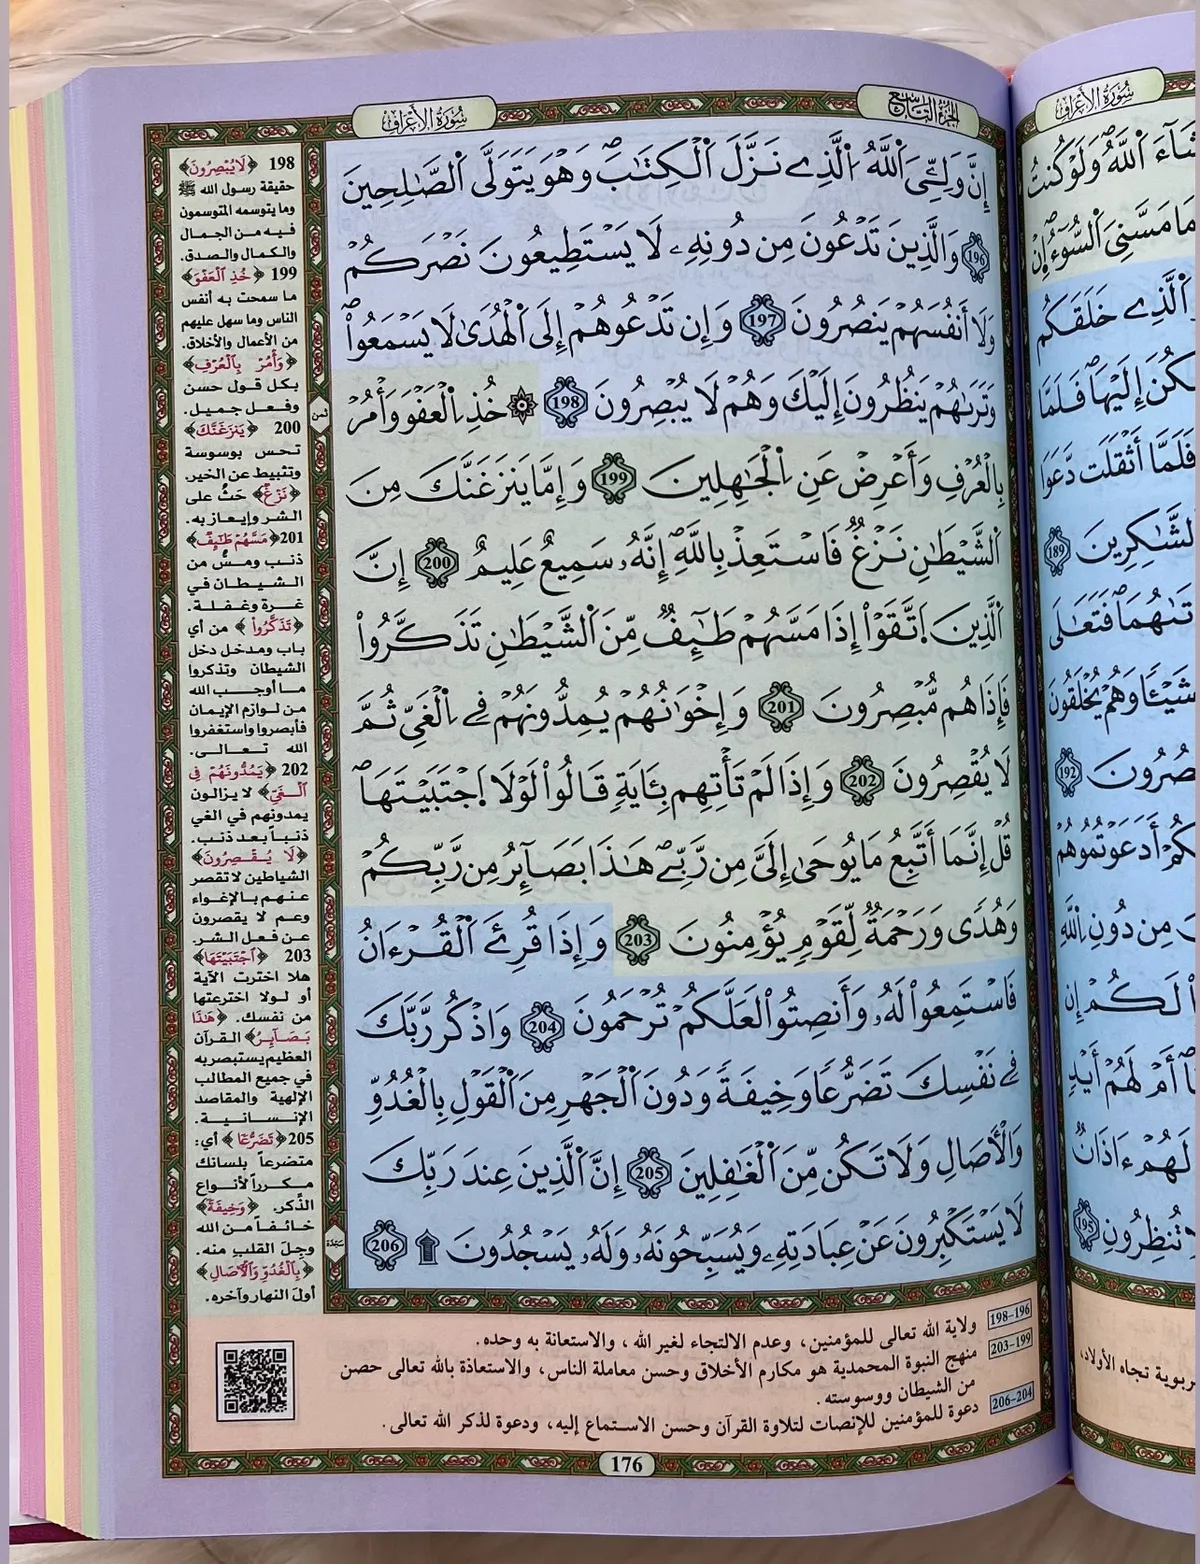 سُورَةُ الأَعْرَاف
الجزء التاسع
سُورَةُ الأَعْرَاف
إِنَّ وَلِـِّۧيَ اَ۬للَّهُ اُ۬لذِے نَزَّلَ اَ۬لْكِتَٰبَۖ وَهُوَ يَتَوَلَّي اَ۬لصَّٰلِحِينَ
196 وَالَّذِينَ تَدْعُونَ مِن دُونِهِۦ لَا يَسْتَطِيعُونَ نَصْرَكُمْ
وَلَا أَنفُسَهُمْ يَنصُرُونَ 197 وَإِن تَدْعُوهُمْ إِلَى اَ۬لْهُدَىٰ لَا يَسْمَعُواْۖ
وَتَرَىٰهُمْ يَنظُرُونَ إِلَيْكَ وَهُمْ لَا يُبْصِرُونَ 198 ۞ خُذِ اِ۬لْعَفْوَ وَأْمُرْ
بِالْعُرْفِ وَأَعْرِضْ عَنِ اِ۬لْجَٰهِلِينَ 199 وَإِمَّا يَنزَغَنَّكَ مِنَ
اَ۬لشَّيْطَٰنِ نَزْغٌ فَاسْتَعِذْ بِاللَّهِۖ إِنَّهُۥ سَمِيعٌ عَلِيمٌ 200 إِنَّ
اَ۬لَّذِينَ اَ۪تَّقَوْاْ إِذَا مَسَّهُمْ طَٰٓئِفٌ مِّنَ اَ۬لشَّيْطَٰنِ تَذَكَّرُواْ
فَإِذَا هُم مُّبْصِرُونَ 201 وَإِخْوَٰنُهُمْ يُمِدُّونَهُمْ فِے اِ۬لْغَيِّ ثُمَّ
لَا يُقْصِرُونَ 202 وَإِذَا لَمْ تَأْتِهِم بِـَٔايَةٍ قَالُواْ لَوْلَا اَ۪جْتَبَيْتَهَاۖ
قُلْ إِنَّمَا أَتَّبِعُ مَا يُوحَىٰ إِلَيَّ مِن رَّبِّےۖ هَٰذَا بَصَآئِرُ مِن رَّبِّكُمْ
وَهُدًى وَرَحْمَةٌ لِّقَوْمٍ يُؤْمِنُونَ 203 وَإِذَا قُرِئَ اَ۬لْقُرْءَانُ
فَاسْتَمِعُواْ لَهُۥ وَأَنصِتُواْ لَعَلَّكُمْ تُرْحَمُونَ 204 وَاذْكُر رَّبَّكَ
فِے نَفْسِكَ تَضَرُّعًا وَخِيفَةً وَدُونَ اَ۬لْجَهْرِ مِنَ اَ۬لْقَوْلِ بِالْغُدُوِّ
وَالْأٓصَالِ وَلَا تَكُن مِّنَ اَ۬لْغَٰفِلِينَ 205 إِنَّ اَ۬لَّذِينَ عِندَ رَبِّكَ
لَا يَسْتَكْبِرُونَ عَنْ عِبَادَتِهِۦ وَيُسَبِّحُونَهُۥ وَلَهُۥ يَسْجُدُونَ ۩ 206
ثمن
سجدة
198 ﴿لَا يُبْصِرُونَ﴾
حقيقة رسول الله ﷺ
وما يتوسمه المتوسمون
فيه من الجمال
والكمال والصدق.
199 ﴿خُذِ الْعَفْوَ﴾
ما سمحت به أنفس
الناس وما سهل عليهم
من الأعمال والأخلاق.
﴿وَأْمُرْ بِالْعُرْفِ﴾
بكل قول حسن
وفعل جميل.
200 ﴿يَنزَغَنَّكَ﴾
تحس بوسوسة
وتثبيط عن الخير.
﴿نَزْغٌ﴾ حَثٌ على
الشر وإيعاز به.
201 ﴿مَسَّهُمْ طَٰٓئِفٌ﴾
ذنب ومسٌ من
الشيطان في
غرة وغفلة.
﴿تَذَكَّرُواْ﴾ من أي
باب ومدخل دخل
الشيطان وتذكروا
ما أوجب الله
من لوازم الإيمان
فأبصروا واستغفروا
الله تعالى.
202 ﴿يَمُدُّونَهُمْ فِي
الْغَيِّ﴾ لا يزالون
يمدونهم في الغي
ذنباً بعد ذنب.
﴿لَا يُقْصِرُونَ﴾
الشياطين لا تقصر
عنهم بالإغواء
وعم لا يقصرون
عن فعل الشر.
203 ﴿اجْتَبَيْتَهَا﴾
هلا اخترت الآية
أو لولا اخترعتها
من نفسك. ﴿هَٰذَا
بَصَآئِرُ﴾ القرآن
العظيم يستبصر به
في جميع المطالب
الإلهية والمقاصد
الإنسانية.
205 ﴿تَضَرُّعًا﴾ أي:
متضرعاً بلسانك
مكرراً لأنواع
الذِّكر. ﴿وَخِيفَةً﴾
خائفاً من الله
وجِلَ القلب منه.
﴿بِالْغُدُوِّ وَالْأٓصَالِ﴾
أولَ النهار وآخره.
198-196 ولاية الله تعالى للمؤمنين، وعدم الالتجاء لغير الله، والاستعانة به وحده.
203-199 منهج النبوة المحمدية هو مكارم الأخلاق وحسن معاملة الناس، والاستعاذة بالله تعالى حصن
من الشيطان ووسوسته.
206-204 دعوة للمؤمنين للإنصات لتلاوة القرآن وحسن الاستماع إليه، ودعوة لذكر الله تعالى.
176
شَآءَ اَ۬للَّهُۖ وَلَوْ كُنتُ
مَا مَسَّنِيَ اَ۬لسُّوٓءُۖ إِنْ
اَ۬لَّذِے خَلَقَكُم
إِلَيْهَاۖ فَلَمَّا
فَلَمَّا أَثْقَلَت دَّعَوَا
اَ۬لشَّٰكِرِينَ 189
فَتَعَٰلَى
شَيْئًا وَهُمْ يُخْلَقُونَ
192
أَدَعَوْتُمُوهُمْ
مِن دُونِ اِ۬للَّهِ
لَكُمْ إِن
أَمْ لَهُمْ أَيْدٍ
لَهُمْ ءَاذَانٌ
تُنظِرُونِ 195
تجاه الأولاد،